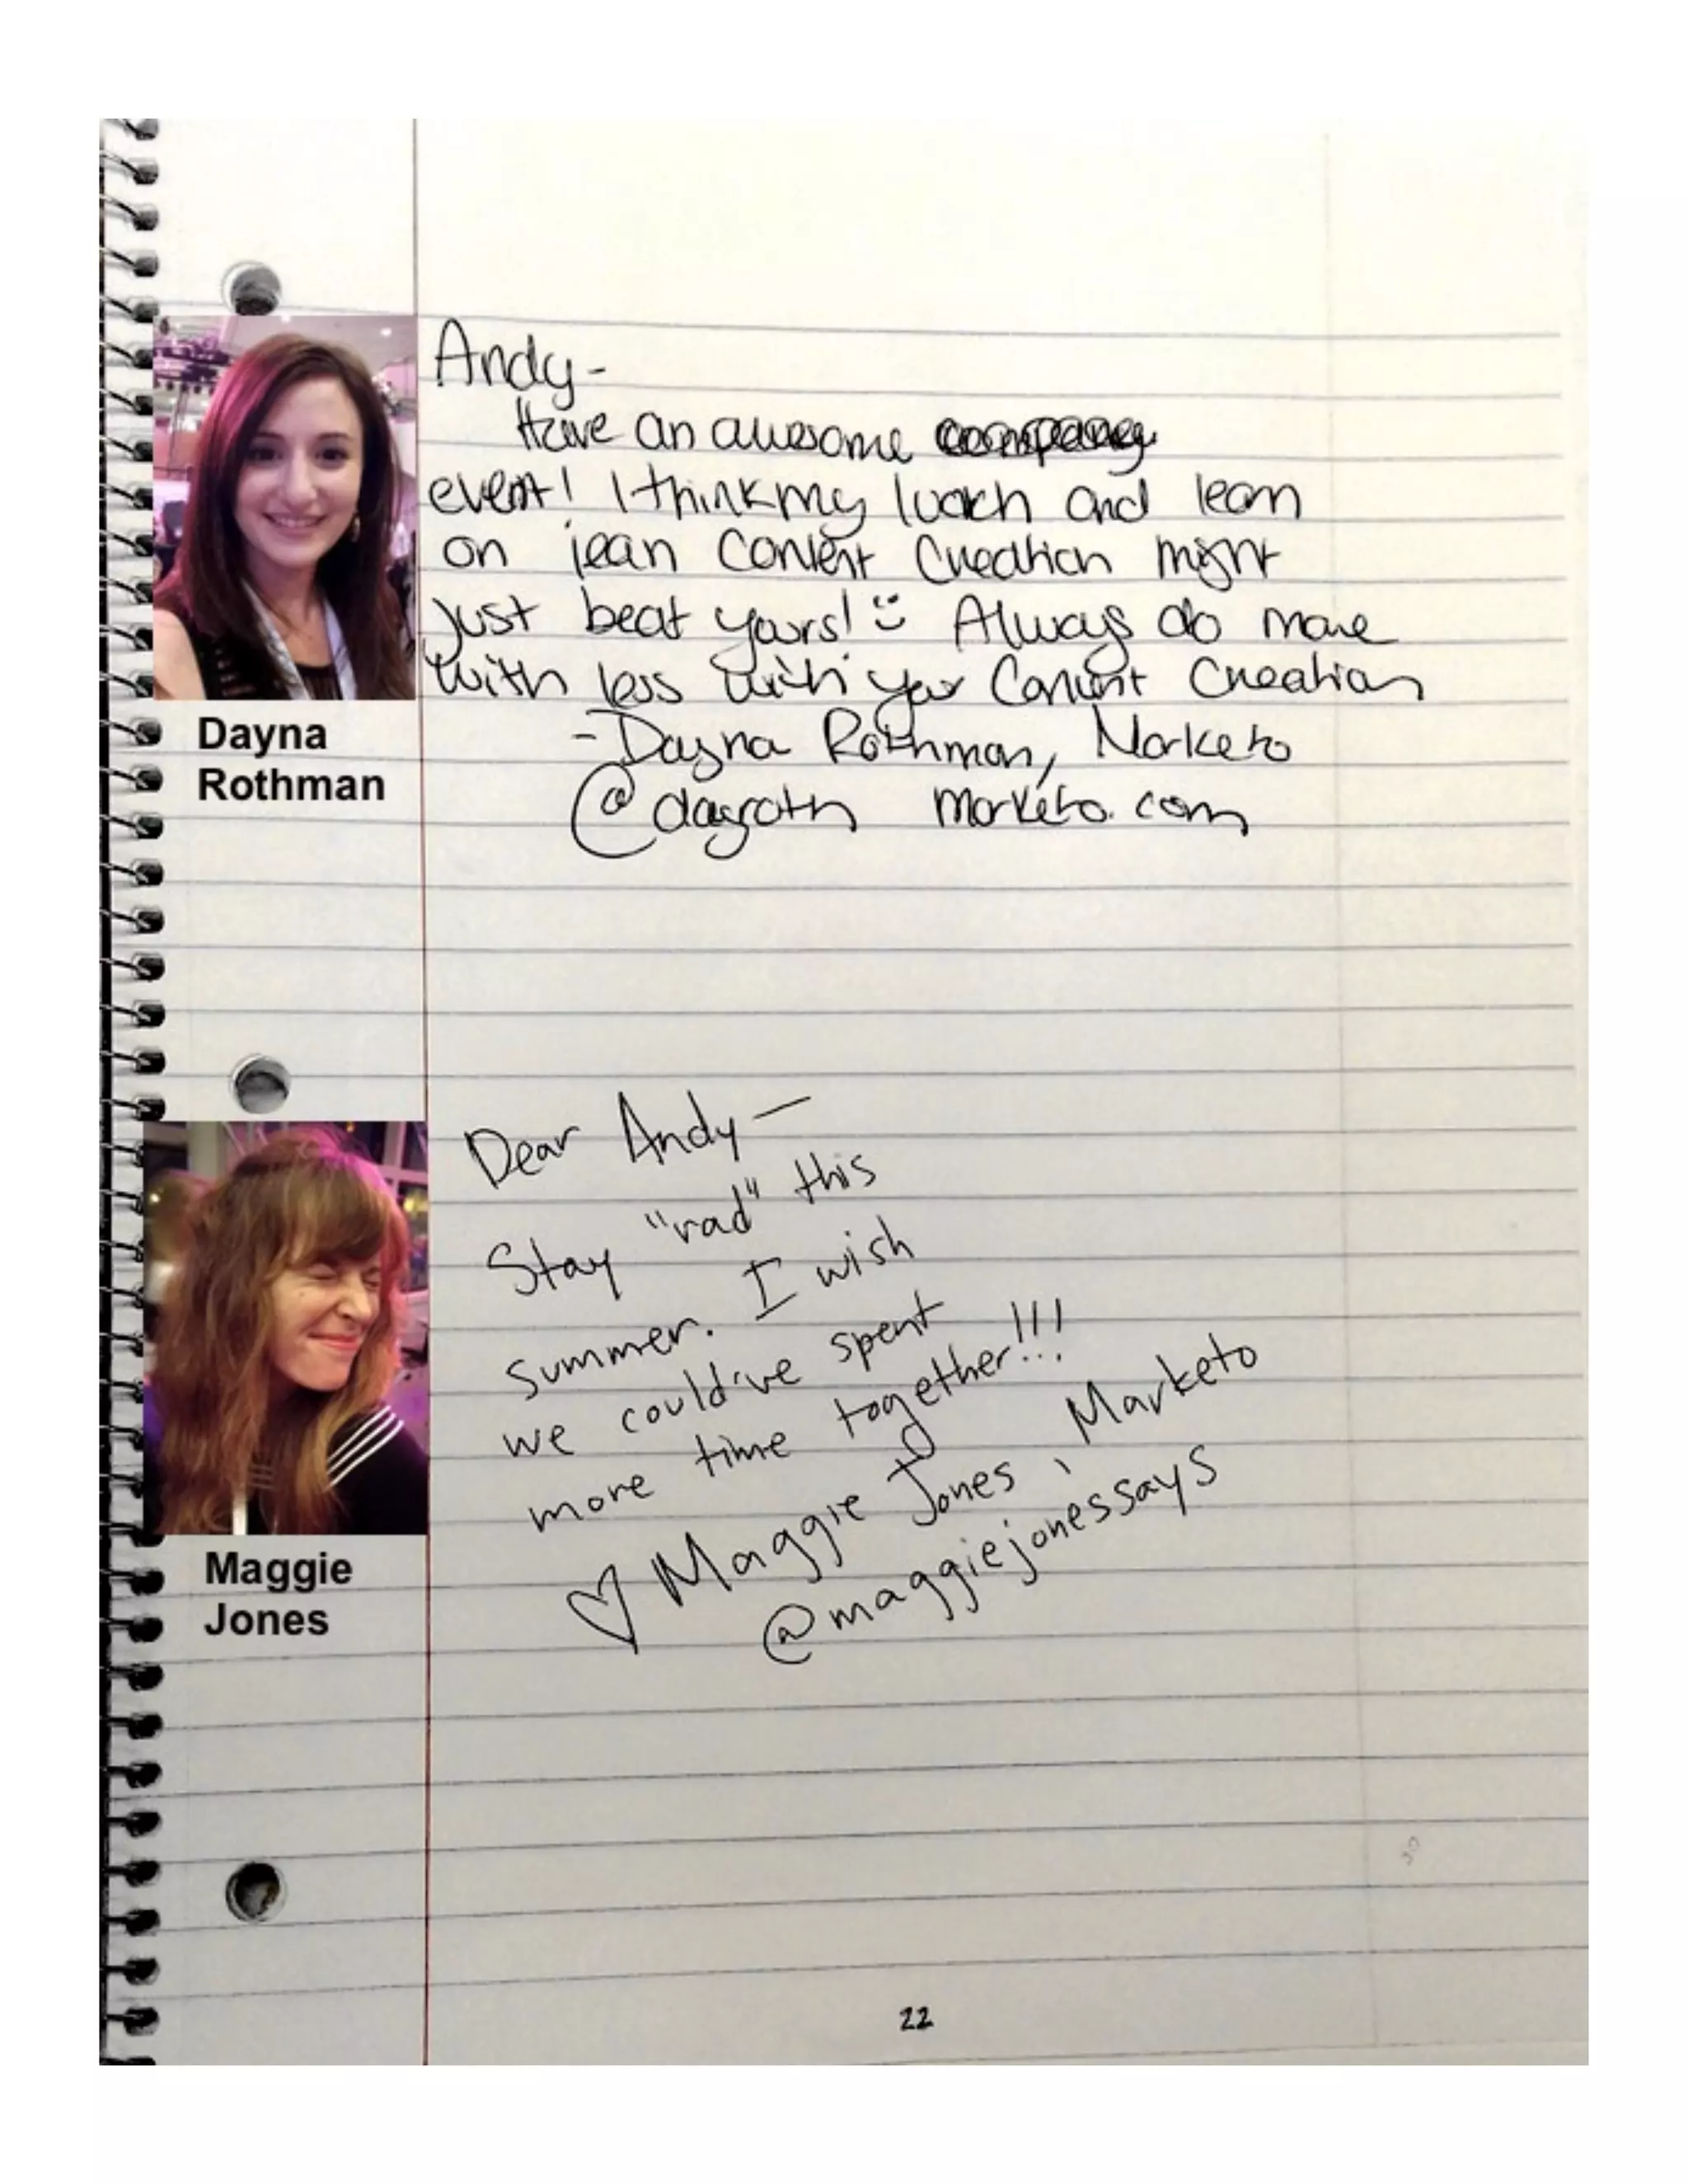 Andy-
Have an awesome
event! I think my lunch and learn
on lean Content Creation might
just beat yours! Always do more
with less with your Content Creation
-Dayna Rothman, Marketo
@dayroth marketo.com
Dayna
Rothman
Dear Andy—
Stay "rad" this
summer. I wish
we could've spent
more time together!!!
♡ Maggie Jones, Marketo
@maggiejonessays
Maggie
Jones
22